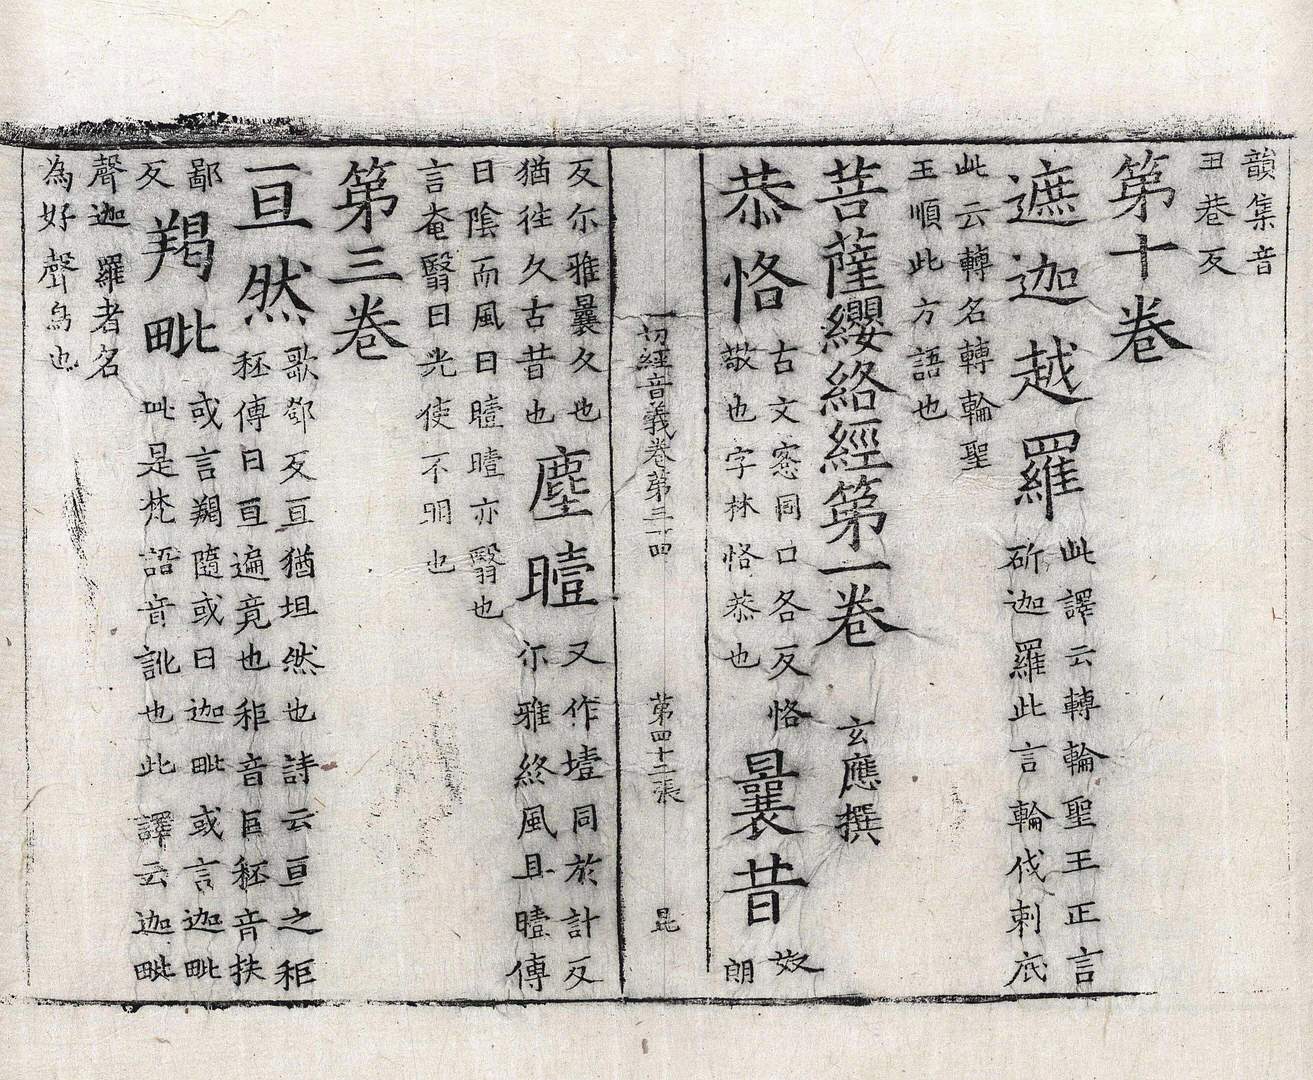 韻集音
丑巷反
第十卷
遮迦越羅 此譯云轉輪聖王正言
斫迦羅此言輪伐剌底
此云轉名轉輪聖
王順此方語也
菩薩纓絡經第一卷 玄應撰
恭恪 古文愙同口各反恪
敬也字林恪恭也
曩昔 奴
朗
一切經音義卷第三十四 第四十二張 昆
反尔雅曩久也
猶往久古昔也
塵曀 又作壒同於計反
尔雅終風且曀傳
曰陰而風曰曀曀亦翳也
言奄翳日光使不明也
第三卷
亘然 歌鄧反亘猶坦然也詩云亘之秬
秠傳曰亘遍竟也秬音巨秠音扶
鄙
反
羯毗 或言羯隨或曰迦毗或言迦毗
此是梵語音訛也此譯云迦毗
聲迦羅者名
為好聲鳥也